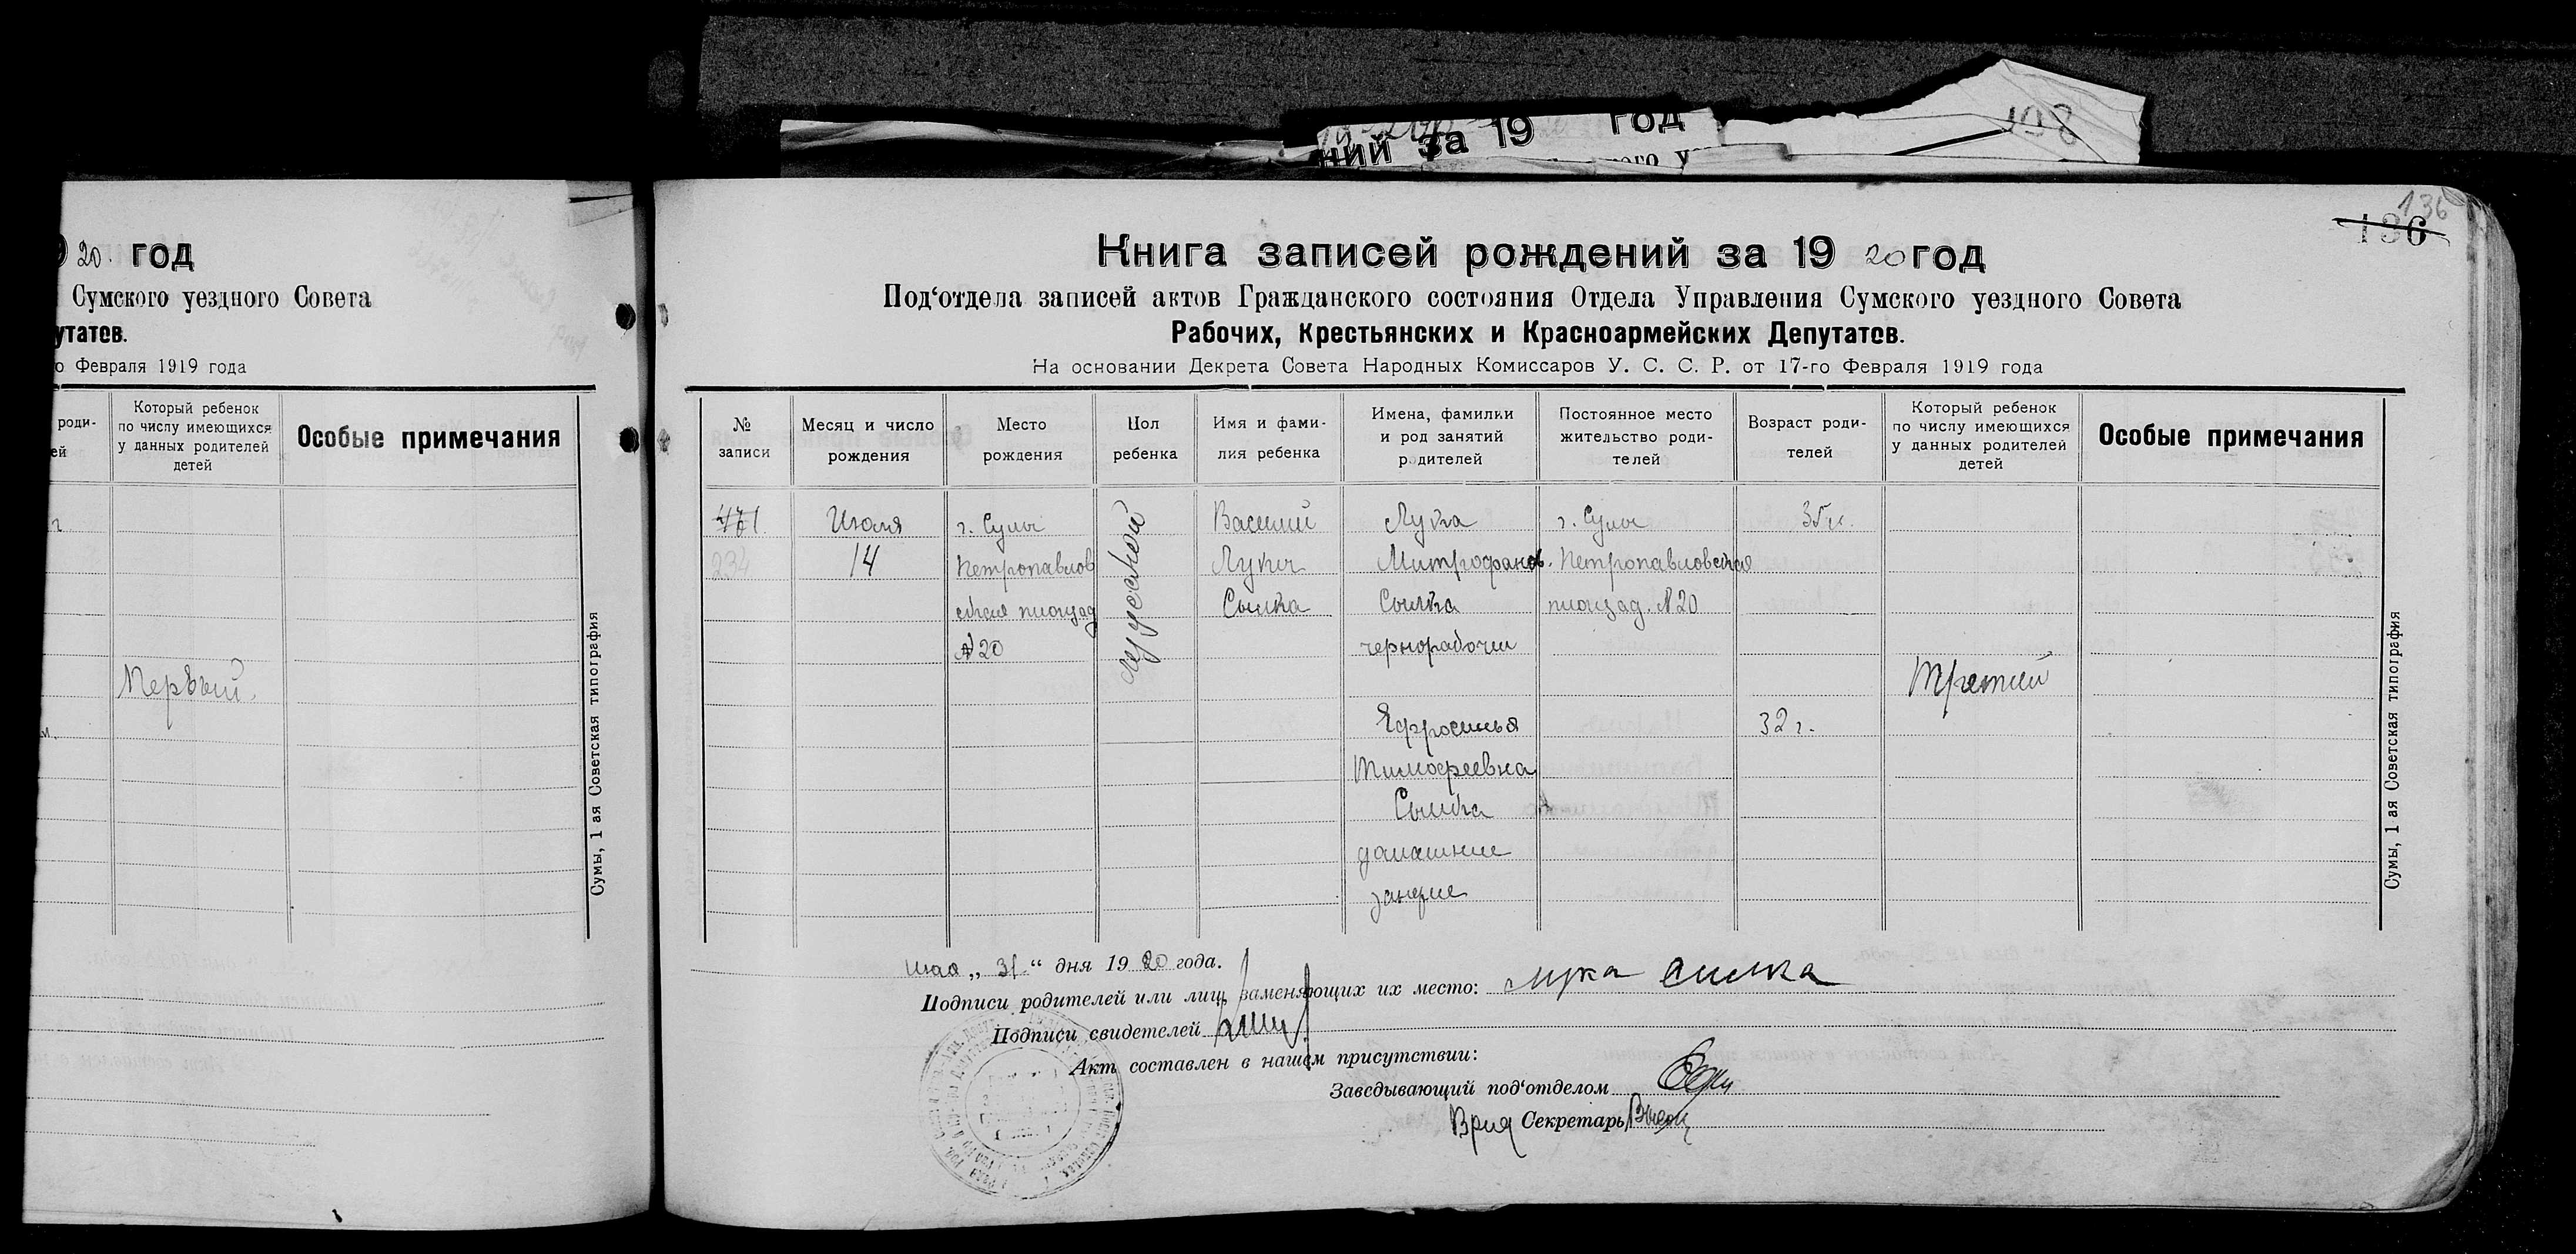 ний за 19 год
198
20 год
Сумского уездного Совета
утатев.
о Февраля 1919 года
роди-
ей
Который ребенок
по числу имеющихся
у данных родителей
детей
Особые примечания
Первый.
Сумы, 1 ая Советская типография
136
136
Книга записей рождений за 19 20 год
Под‘отдела записей актов Гражданского состояния Отдела Управления Сумского уездного Совета
Рабочих, Крестьянских и Красноармейских Депутатов.
На основании Декрета Совета Народных Комиссаров У. С. С. Р. от 17-го Февраля 1919 года
№
записи
Месяц и число
рождения
Место
рождения
Пол
ребенка
Имя и фами-
лия ребенка
Имена, фамилии
и род занятий
родителей
Постоянное место
жительство роди-
телей
Возраст роди-
телей
Который ребенок
по числу имеющихся
у данных родителей
детей
Особые примечания
471
234
Июля
14
г. Сумы
Петропавлов
ская площад
№ 20
мужской
Василий
Лукич
Сылка
Лука
Митрофанов.
Сылка
чернорабочий
Ефросинья
Тимофеевна
Сылка
домашние
занятие
г. Сумы
Петропавловская
площад. № 20
35 л.
32 г.
Третий
Сумы, 1 ая Советская типография
„ 31 “ дня 19 20 года.
Подписи родителей или лиц, заменяющих их место: Лука Силка
Подписи свидетелей
Акт составлен в нашем присутствии:
Заведывающий под‘отделом
Врид Секретарь